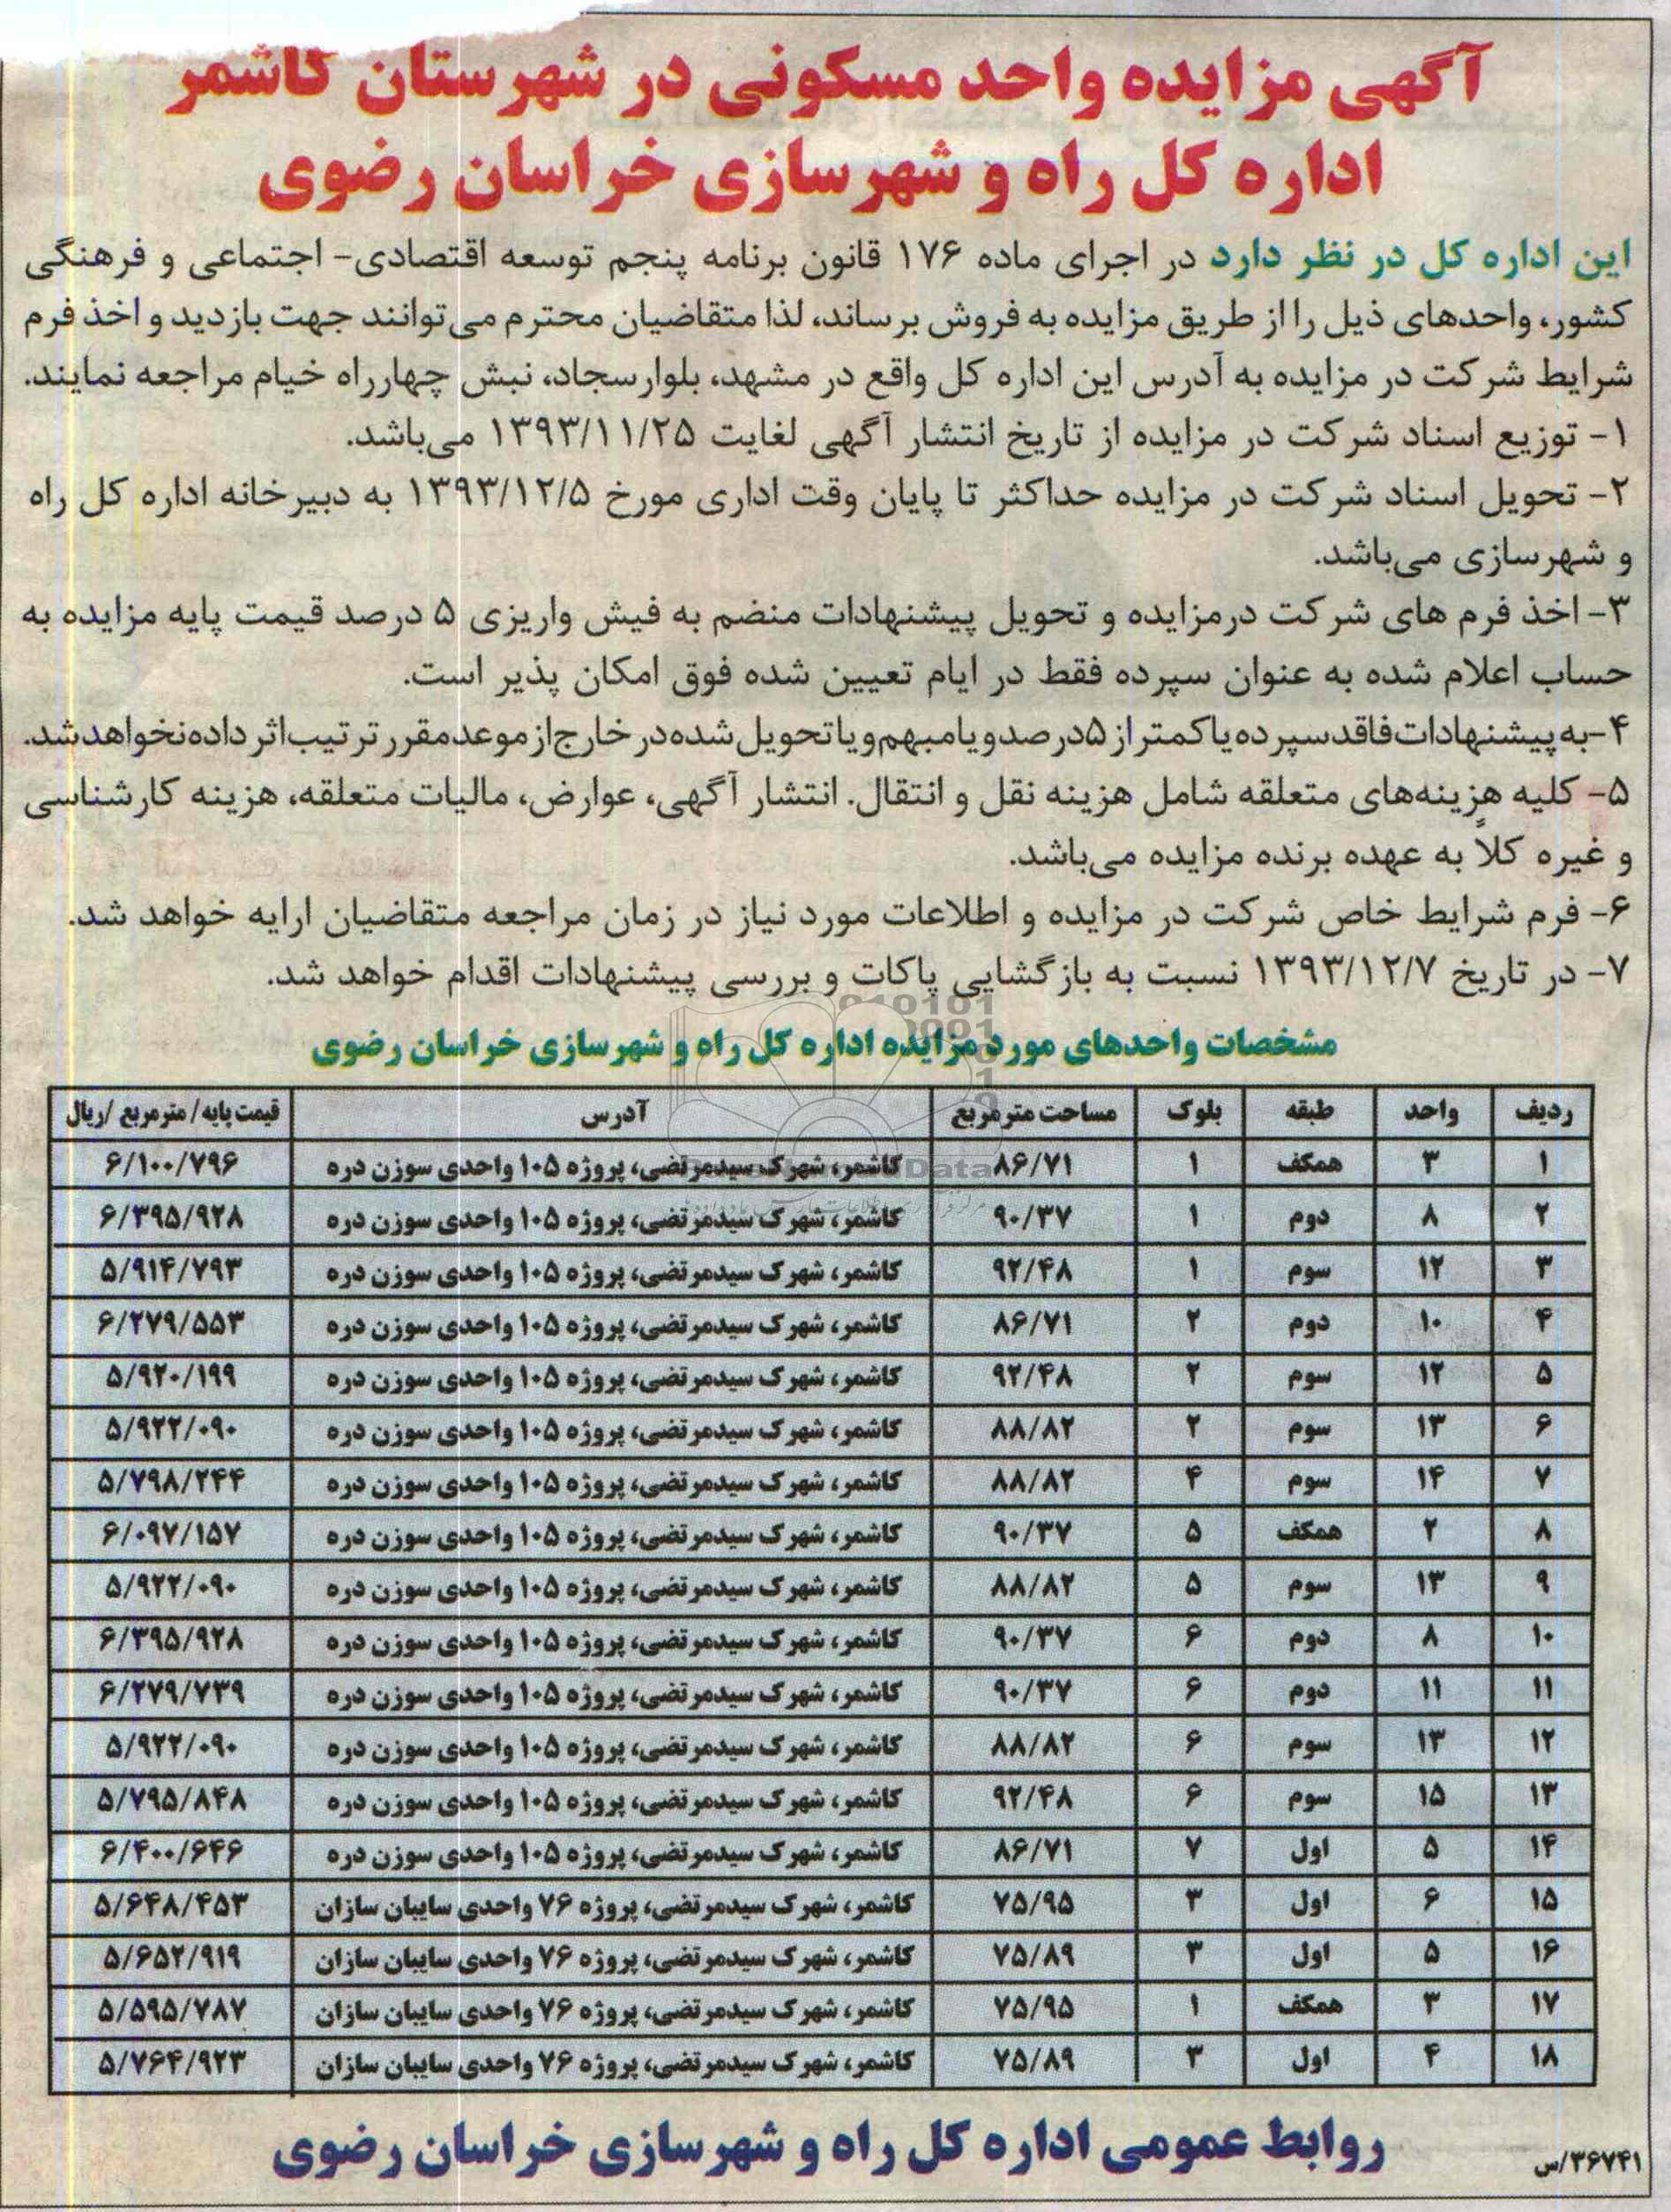 آگهی مزایده واحد مسکونی در شهرستان کاشمر
اداره کل راه و شهرسازی خراسان رضوی
این اداره کل در نظر دارد در اجرای ماده ۱۷۶ قانون برنامه پنجم توسعه اقتصادی- اجتماعی و فرهنگی
کشور، واحدهای ذیل را از طریق مزایده به فروش برساند، لذا متقاضیان محترم می‌توانند جهت بازدید و اخذ فرم
شرایط شرکت در مزایده به آدرس این اداره کل واقع در مشهد، بلوارسجاد، نبش چهارراه خیام مراجعه نمایند.
۱- توزیع اسناد شرکت در مزایده از تاریخ انتشار آگهی لغایت ۱۳۹۳/۱۱/۲۵ می‌باشد.
۲- تحویل اسناد شرکت در مزایده حداکثر تا پایان وقت اداری مورخ ۱۳۹۳/۱۲/۵ به دبیرخانه اداره کل راه
و شهرسازی می‌باشد.
۳- اخذ فرم های شرکت درمزایده و تحویل پیشنهادات منضم به فیش واریزی ۵ درصد قیمت پایه مزایده به
حساب اعلام شده به عنوان سپرده فقط در ایام تعیین شده فوق امکان پذیر است.
۴-به پیشنهادات فاقد سپرده یا کمتر از ۵درصد و یا مبهم و یا تحویل شده در خارج از موعد مقرر ترتیب اثر داده نخواهد شد.
۵- کلیه هزینه‌های متعلقه شامل هزینه نقل و انتقال. انتشار آگهی، عوارض، مالیات متعلقه، هزینه کارشناسی
و غیره کلاً به عهده برنده مزایده می‌باشد.
۶- فرم شرایط خاص شرکت در مزایده و اطلاعات مورد نیاز در زمان مراجعه متقاضیان ارایه خواهد شد.
۷- در تاریخ ۱۳۹۳/۱۲/۷ نسبت به بازگشایی پاکات و بررسی پیشنهادات اقدام خواهد شد.
مشخصات واحدهای مورد مزایده اداره کل راه و شهرسازی خراسان رضوی
ردیف واحد طبقه بلوک مساحت مترمربع آدرس قیمت پایه/ مترمربع /ریال
۱ ۳ همکف ۱ ۸۶/۷۱ کاشمر، شهرک سیدمرتضی، پروژه ۱۰۵ واحدی سوزن دره ۶/۱۰۰/۷۹۶
۲ ۸ دوم ۱ ۹۰/۳۷ کاشمر، شهرک سیدمرتضی، پروژه ۱۰۵ واحدی سوزن دره ۶/۳۹۵/۹۲۸
۳ ۱۲ سوم ۱ ۹۲/۴۸ کاشمر، شهرک سیدمرتضی، پروژه ۱۰۵ واحدی سوزن دره ۵/۹۱۴/۷۹۳
۴ ۱۰ دوم ۲ ۸۶/۷۱ کاشمر، شهرک سیدمرتضی، پروژه ۱۰۵ واحدی سوزن دره ۶/۲۷۹/۵۵۳
۵ ۱۲ سوم ۲ ۹۲/۴۸ کاشمر، شهرک سیدمرتضی، پروژه ۱۰۵ واحدی سوزن دره ۵/۹۲۰/۱۹۹
۶ ۱۳ سوم ۲ ۸۸/۸۲ کاشمر، شهرک سیدمرتضی، پروژه ۱۰۵ واحدی سوزن دره ۵/۹۲۲/۰۹۰
۷ ۱۴ سوم ۴ ۸۸/۸۲ کاشمر، شهرک سیدمرتضی، پروژه ۱۰۵ واحدی سوزن دره ۵/۷۹۸/۲۴۴
۸ ۲ همکف ۵ ۹۰/۳۷ کاشمر، شهرک سیدمرتضی، پروژه ۱۰۵ واحدی سوزن دره ۶/۰۹۷/۱۵۷
۹ ۱۳ سوم ۵ ۸۸/۸۲ کاشمر، شهرک سیدمرتضی، پروژه ۱۰۵ واحدی سوزن دره ۵/۹۲۲/۰۹۰
۱۰ ۸ دوم ۶ ۹۰/۳۷ کاشمر، شهرک سیدمرتضی، پروژه ۱۰۵ واحدی سوزن دره ۶/۳۹۵/۹۲۸
۱۱ ۱۱ دوم ۶ ۹۰/۳۷ کاشمر، شهرک سیدمرتضی، پروژه ۱۰۵ واحدی سوزن دره ۶/۲۷۹/۷۳۹
۱۲ ۱۳ سوم ۶ ۸۸/۸۲ کاشمر، شهرک سیدمرتضی، پروژه ۱۰۵ واحدی سوزن دره ۵/۹۲۲/۰۹۰
۱۳ ۱۵ سوم ۶ ۹۲/۴۸ کاشمر، شهرک سیدمرتضی، پروژه ۱۰۵ واحدی سوزن دره ۵/۷۹۵/۸۴۸
۱۴ ۵ اول ۷ ۸۶/۷۱ کاشمر، شهرک سیدمرتضی، پروژه ۱۰۵ واحدی سوزن دره ۶/۴۰۰/۶۴۶
۱۵ ۶ اول ۳ ۷۵/۹۵ کاشمر، شهرک سیدمرتضی، پروژه ۷۶ واحدی سایبان سازان ۵/۶۴۸/۴۵۳
۱۶ ۵ اول ۳ ۷۵/۸۹ کاشمر، شهرک سیدمرتضی، پروژه ۷۶ واحدی سایبان سازان ۵/۶۵۲/۹۱۹
۱۷ ۳ همکف ۱ ۷۵/۹۵ کاشمر، شهرک سیدمرتضی، پروژه ۷۶ واحدی سایبان سازان ۵/۵۹۵/۷۸۷
۱۸ ۴ اول ۳ ۷۵/۸۹ کاشمر، شهرک سیدمرتضی، پروژه ۷۶ واحدی سایبان سازان ۵/۷۶۴/۹۲۳
روابط عمومی اداره کل راه و شهرسازی خراسان رضوی
۳۶۷۴۱/س